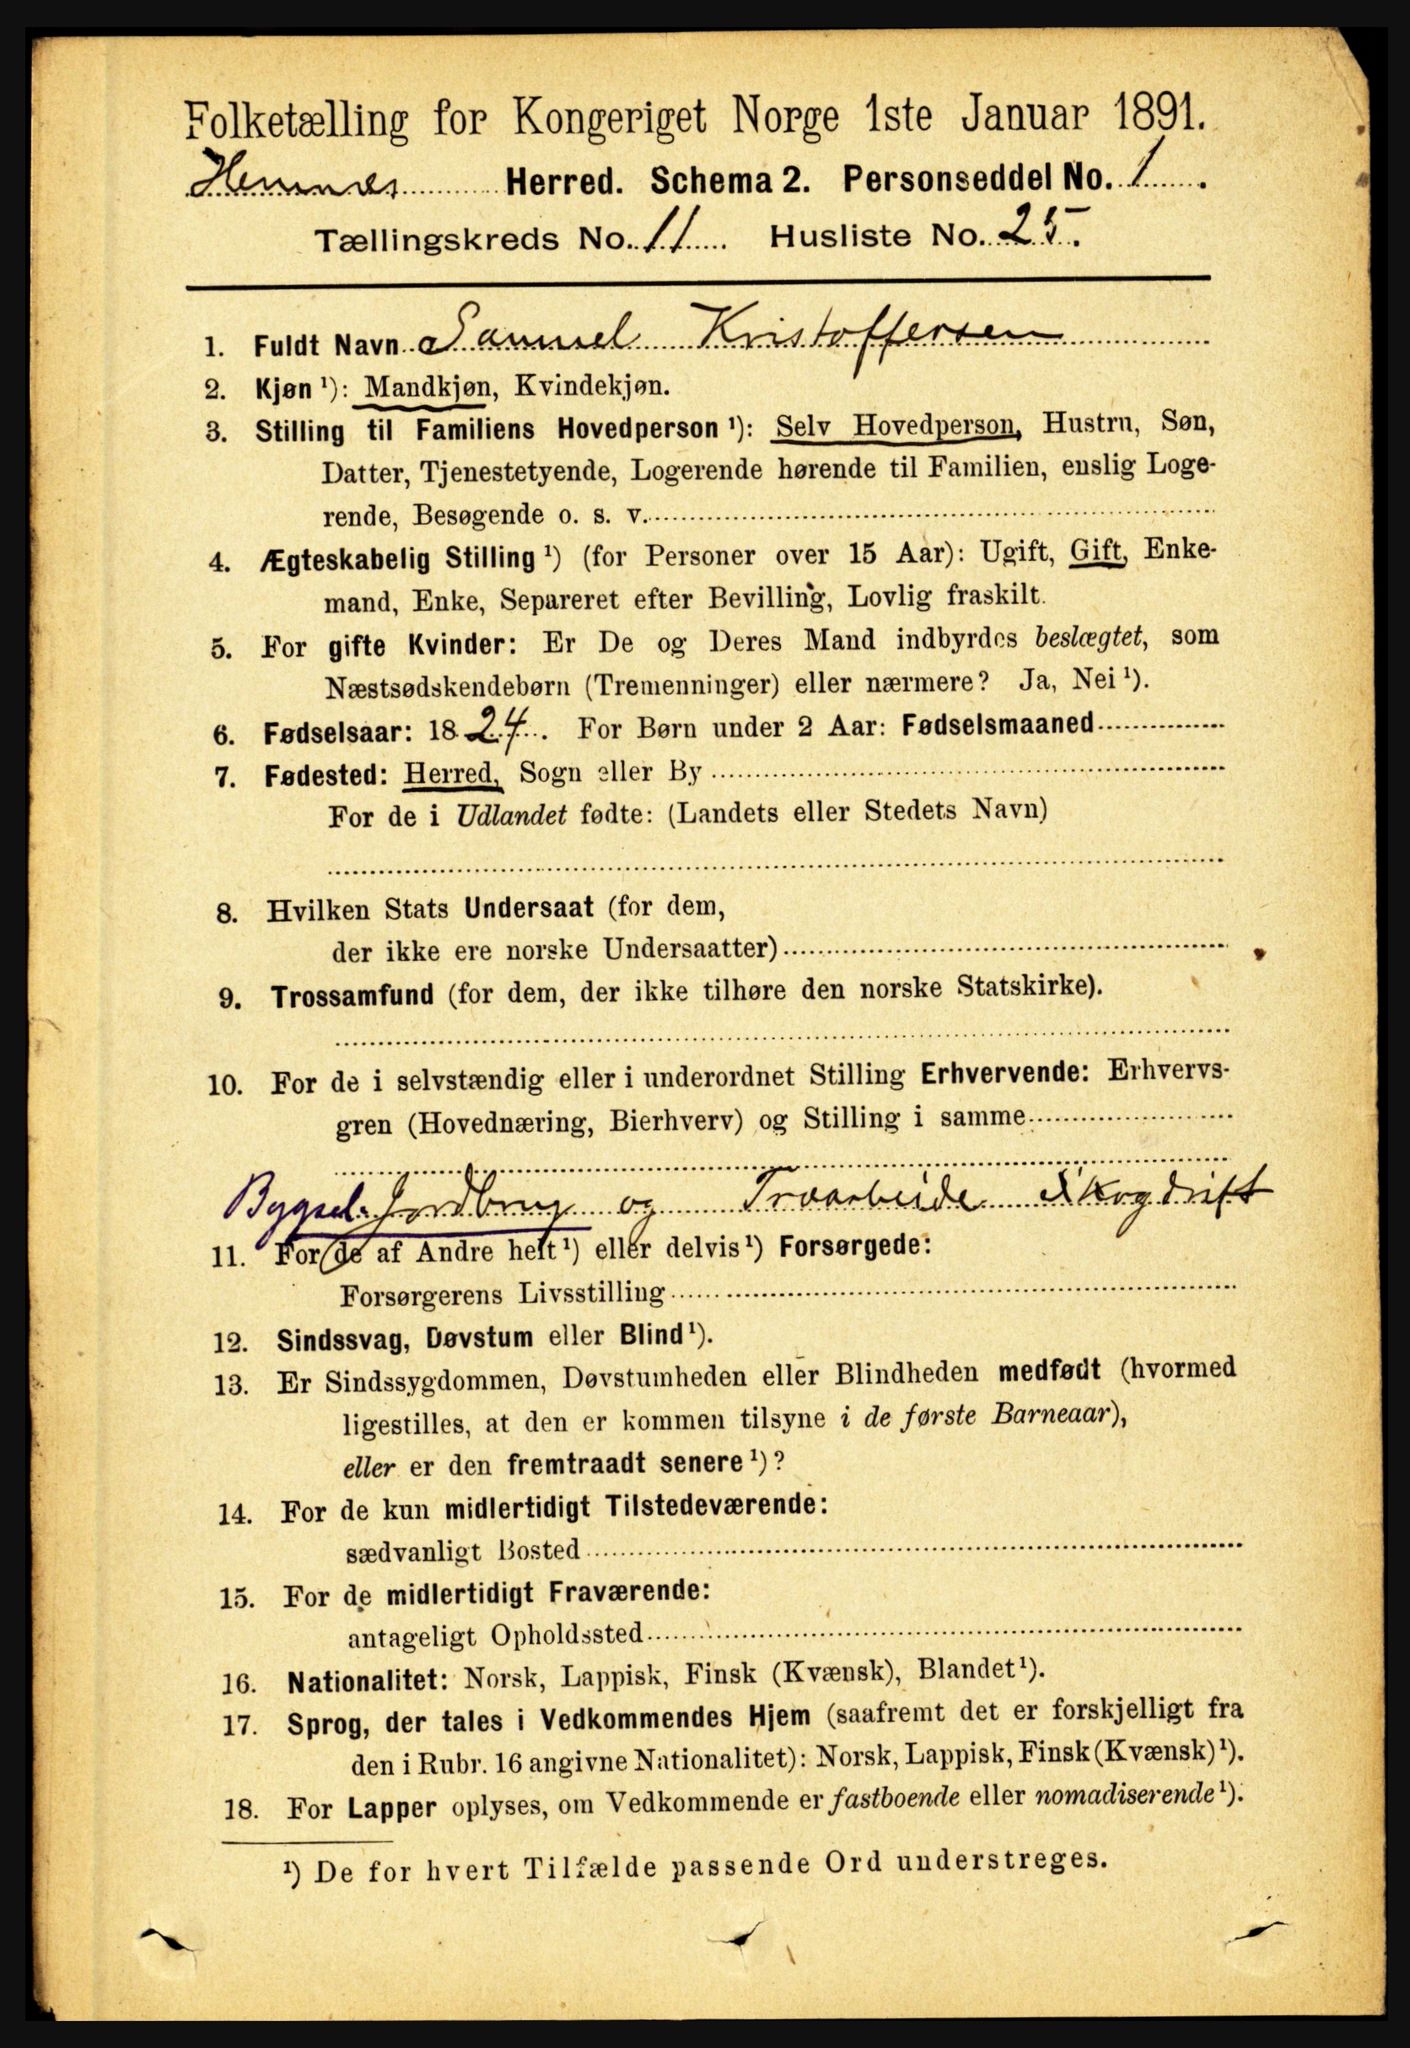 Folketælling for Kongeriget Norge 1ste Januar 1891.
Hemnes Herred. Schema 2. Personseddel No. 1.
Tællingskreds No. 11. Husliste No. 25.
1. Fuldt Navn Samuel Kristoffersen
2. Kjøn ¹): Mandkjøn, Kvindekjøn.
3. Stilling til Familiens Hovedperson ¹): Selv Hovedperson, Hustru, Søn,
Datter, Tjenestetyende, Logerende hørende til Familien, enslig Loge-
rende, Besøgende o. s. v.
4. Ægteskabelig Stilling ¹) (for Personer over 15 Aar): Ugift, Gift, Enke-
mand, Enke, Separeret efter Bevilling, Lovlig fraskilt.
5. For gifte Kvinder: Er De og Deres Mand indbyrdes beslægtet, som
Næstsødskendebørn (Tremenninger) eller nærmere? Ja, Nei ¹).
6. Fødselsaar: 1824. For Børn under 2 Aar: Fødselsmaaned
7. Fødested: Herred, Sogn eller By
For de i Udlandet fødte: (Landets eller Stedets Navn)
8. Hvilken Stats Undersaat (for dem,
der ikke ere norske Undersaatter)
9. Trossamfund (for dem, der ikke tilhøre den norske Statskirke).
10. For de i selvstændig eller i underordnet Stilling Erhvervende: Erhvervs-
gren (Hovednæring, Bierhverv) og Stilling i samme
Bygsel. Jordbrug og Træarbeide Skogdrift
11. For de af Andre helt ¹) eller delvis ¹) Forsørgede:
Forsørgerens Livsstilling
12. Sindssvag, Døvstum eller Blind ¹).
13. Er Sindssygdommen, Døvstumheden eller Blindheden medfødt (hvormed
ligestilles, at den er kommen tilsyne i de første Barneaar),
eller er den fremtraadt senere ¹)?
14. For de kun midlertidigt Tilstedeværende:
sædvanligt Bosted
15. For de midlertidigt Fraværende:
antageligt Opholdssted
16. Nationalitet: Norsk, Lappisk, Finsk (Kvænsk), Blandet ¹).
17. Sprog, der tales i Vedkommendes Hjem (saafremt det er forskjelligt fra
den i Rubr. 16 angivne Nationalitet): Norsk, Lappisk, Finsk (Kvænsk) ¹).
18. For Lapper oplyses, om Vedkommende er fastboende eller nomadiserende ¹).
¹) De for hvert Tilfælde passende Ord understreges.